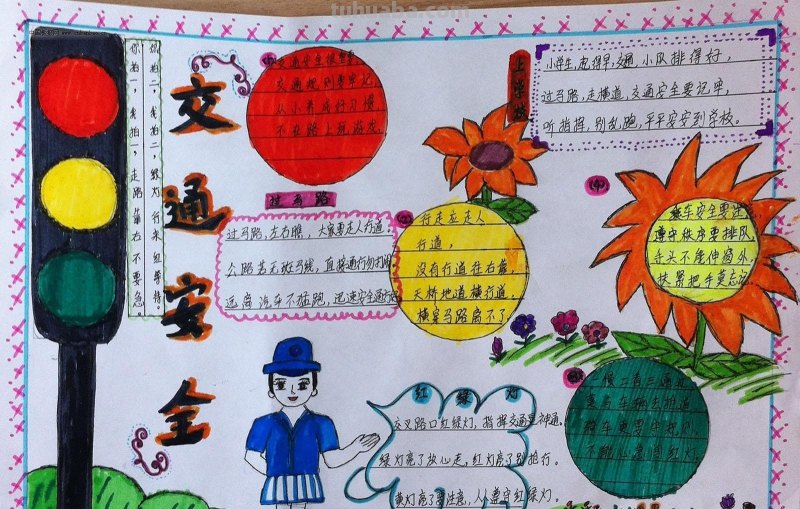 tuhuaba.com
你拍一，我拍一，走路靠右不要急
你拍二，我拍二，绿灯行来红等待。
交通安全
交通安全很重要
交通规则要牢记
从小养成好习惯
不在路上玩游戏
上学校
小学生，起得早，交通小队排得好，
过马路，走横道，交通安全要记牢，
听指挥，别乱跑，平平安安到学校。
过马路
过马路，左右瞧，大家要走人行道。
公路若无斑马线，直接通行勿打闹
远离汽车不猛跑，迅速安全通行
行走应走人
行道，
没有行道往右靠，
天桥地道横行道，
横穿马路离不了
乘车安全要注意
遵守秩序要排队
手头不能伸窗外，
扶紧把手莫忘记
红绿灯
交叉路口红绿灯，指挥交通显神通，
绿灯亮了放心走，红灯亮了别抢行。
黄灯亮了要注意，人人遵守红绿灯。